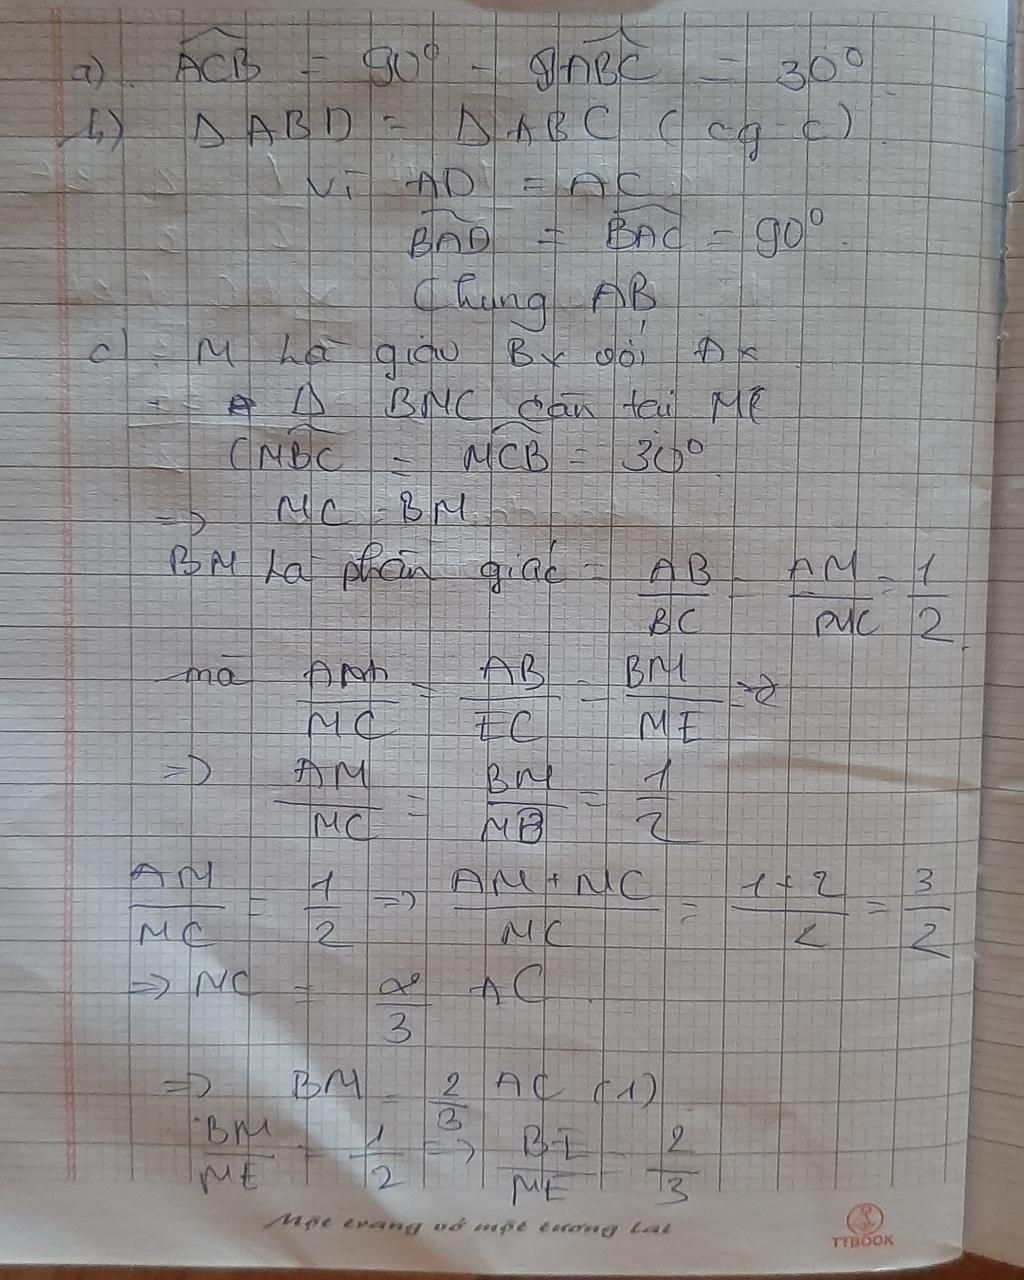 a) ACB = 90° - ABC = 30°
b) Δ ABD = Δ ABC (c g-c)
vì AD = AC
BAD = BAC = 90°
Chung AB
c) M là giao Bx với Ax
Δ BMC cân tại M
(MBC = MCB = 30°
=> MC = BM
BM là phân giác = AB/BC = AM/MC = 1/2
mà AM/MC = AB/EC = BM/ME =>
=> AM/MC = BM/MB = 1/2
AM/MC = 1/2 => AM + MC/MC = 1+2/2 = 3/2
=> MC = 2/3 AC
=> BM = 2/3 AC (1)
BM/ME = 1/2 => BE/ME = 2/3
Một trang vở một tương lai
TTBOOK